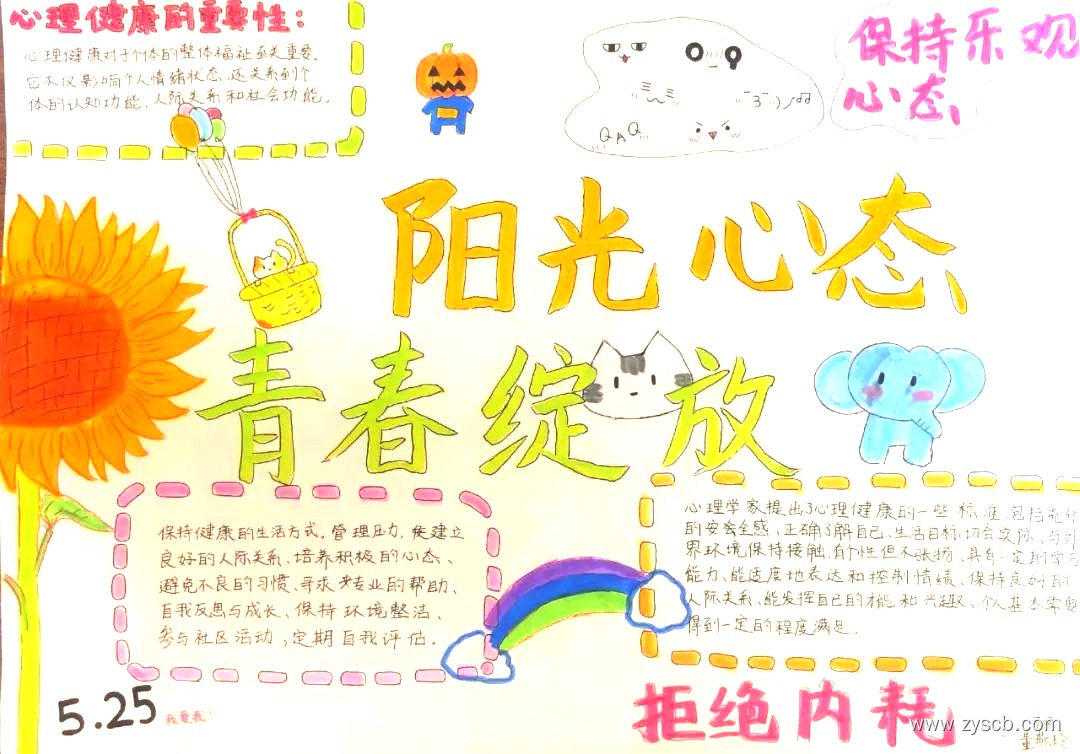 心理健康的重要性：
心理健康对于个体的整体福祉至关重要，
它不仅影响个人情绪状态，还关系到个
体的认知功能，人际关系和社会功能。
保持乐观
心态，
QAQ
3
阳光心态
青春绽放
保持健康的生活方式，管理压力，建立
良好的人际关系、培养积极的心态、
避免不良的习惯、寻求专业的帮助、
自我反思与成长、保持环境整洁、
参与社区活动，定期自我评估。
心理学家提出了心理健康的一些标准，包括充分
的安全感，正确了解自己，生活目标切合实际，与外
界环境保持接触，有个性但不张扬，具有一定的学习
能力，能适度地表达和控制情绪，保持良好的
人际关系、能发挥自己的才能和兴趣、个人基本需要
得到一定的程度满足。
5.25 我爱我！
拒绝内耗
www.zyscb.com